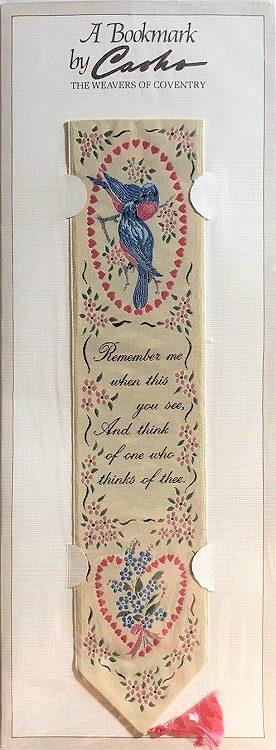 A Bookmark
by Cash's
THE WEAVERS OF COVENTRY
Remember me
when this
you see,
And think
of one who
thinks of thee.